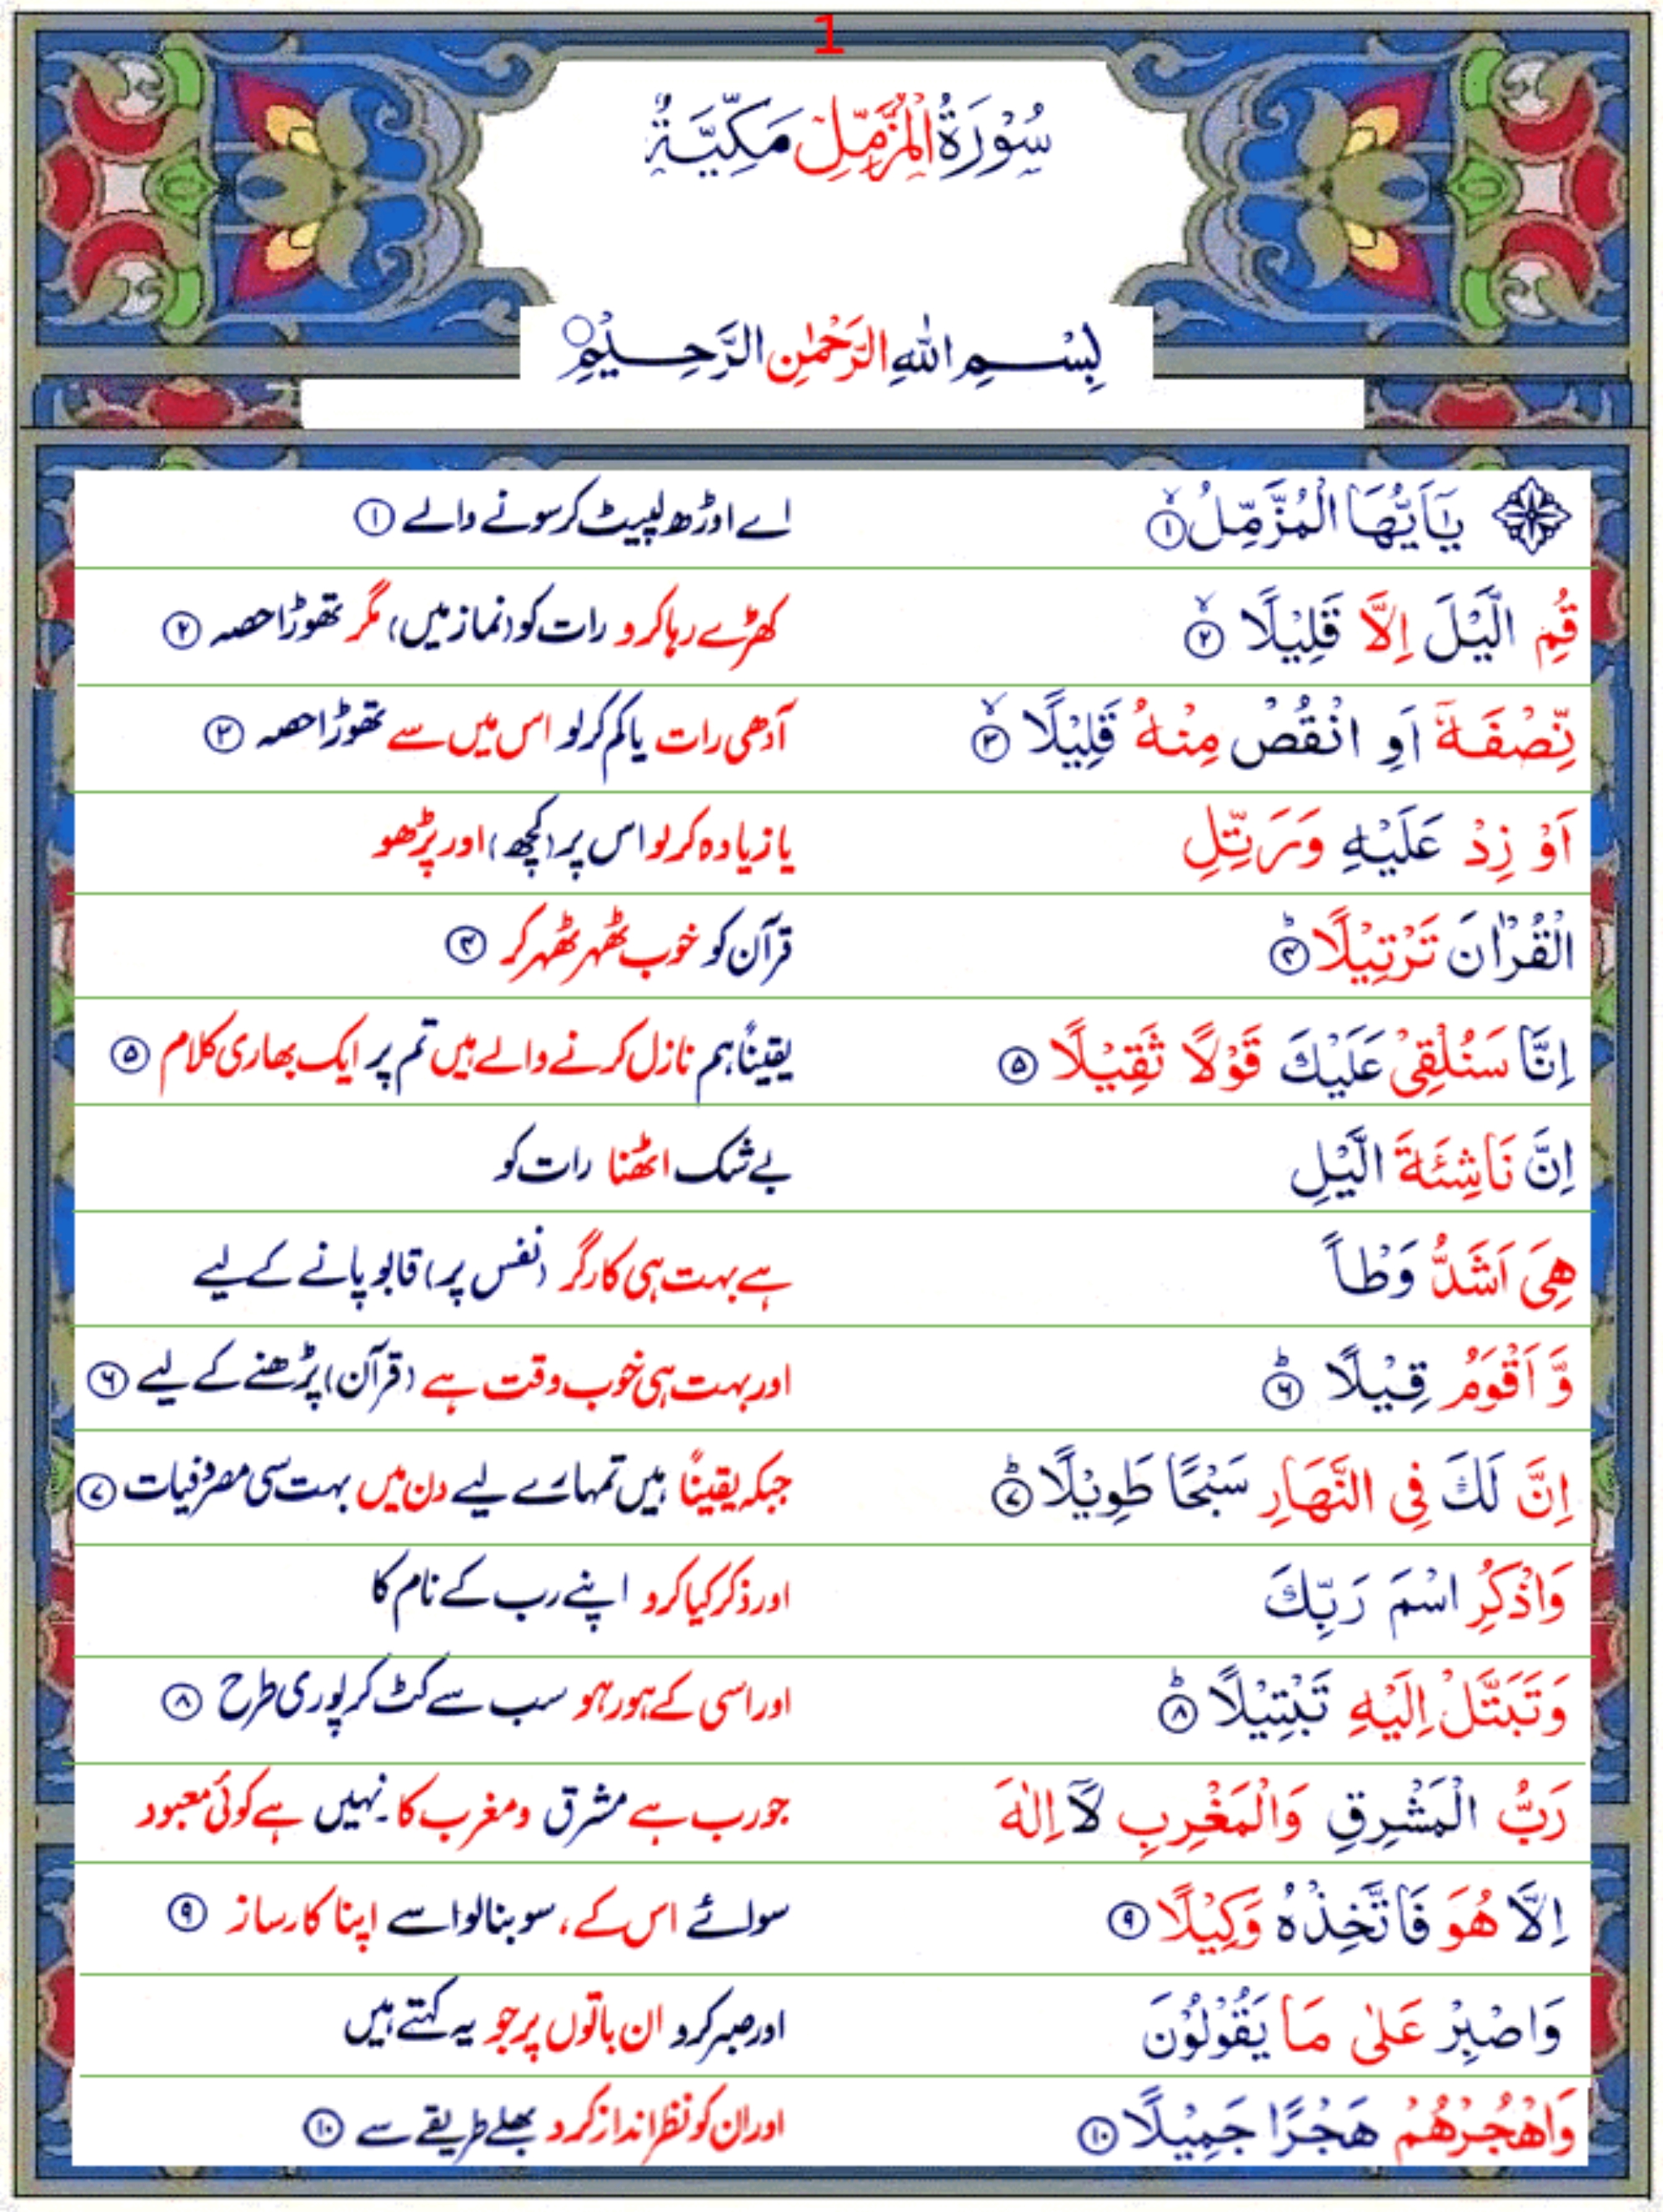 1
سُوْرَةُ الْمُزَّمِّلِ مَكِّيَّةٌ
بِسْمِ اللّٰهِ الرَّحْمٰنِ الرَّحِيْمِ
يٰۤاَيُّهَا الْمُزَّمِّلُ ۙ۱ اے اوڑھ لپیٹ کر سونے والے ۱
قُمِ الَّيْلَ اِلَّا قَلِيْلًا ۙ۲ کھڑے رہا کرو رات کو (نماز میں) مگر تھوڑا حصہ ۲
نِّصْفَهٗۤ اَوِ انْقُصْ مِنْهُ قَلِيْلًا ۙ۳ آدھی رات یا کم کرلو اس میں سے تھوڑا حصہ ۳
اَوْ زِدْ عَلَيْهِ وَرَتِّلِ یا زیادہ کرلو اس پر (کچھ) اور پڑھو
الْقُرْاٰنَ تَرْتِيْلًا ؕ۴ قرآن کو خوب ٹھہر ٹھہر کر ۴
اِنَّا سَنُلْقِيْ عَلَيْكَ قَوْلًا ثَقِيْلًا ۵ یقیناً ہم نازل کرنے والے ہیں تم پر ایک بھاری کلام ۵
اِنَّ نَاشِئَةَ الَّيْلِ بے شک اٹھنا رات کو
هِيَ اَشَدُّ وَطْاً ہے بہت ہی کارگر (نفس پر) قابو پانے کے لیے
وَّ اَقْوَمُ قِيْلًا ؕ۶ اور بہت ہی خوب وقت ہے (قرآن) پڑھنے کے لیے ۶
اِنَّ لَكَ فِي النَّهَارِ سَبْحًا طَوِيْلًا ؕ۷ جبکہ یقیناً ہیں تمہارے لیے دن میں بہت سی مصروفیات ۷
وَاذْكُرِ اسْمَ رَبِّكَ اور ذکر کیا کرو اپنے رب کے نام کا
وَتَبَتَّلْ اِلَيْهِ تَبْتِيْلًا ؕ۸ اور اسی کے ہو رہو سب سے کٹ کر پوری طرح ۸
رَبُّ الْمَشْرِقِ وَالْمَغْرِبِ لَاۤ اِلٰهَ جو رب ہے مشرق ومغرب کا۔ نہیں ہے کوئی معبود
اِلَّا هُوَ فَاتَّخِذْهُ وَكِيْلًا ۹ سوائے اس کے، سو بنا لو اسے اپنا کارساز ۹
وَاصْبِرْ عَلٰى مَا يَقُوْلُوْنَ اور صبر کرو ان باتوں پر جو یہ کہتے ہیں
وَاهْجُرْهُمْ هَجْرًا جَمِيْلًا ۱۰ اور ان کو نظر انداز کرو بھلے طریقے سے ۱۰